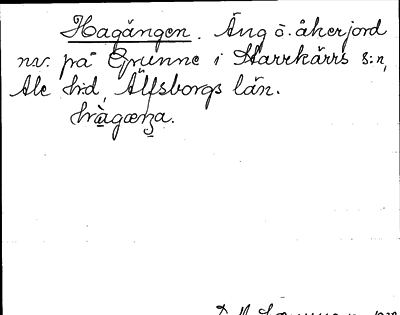 Hagängen. Äng o. åkerjord
nv. på Grunne i Starrkärrs s:n,
Ale hd, Älfsborgs län.